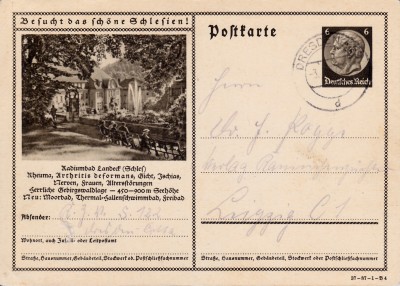 Besucht das schöne Schlesien!
Postkarte
6 6
Deutsches Reich
DRESD
d
Radiumbad Landeck (Schles)
Rheuma, Arthritis deformans, Gicht, Ischias,
Nerven, Frauen, Altersstörungen
Herrliche Gebirgswaldlage — 450-900m Seehöhe
Neu: Moorbad, Thermal-Hallenschwimmbad, Freibad
Absender:
Wohnort, auch Zustell- oder Leitpostamt
Straße, Hausnummer, Gebäudeteil, Stockwerk od. Postschließfachnummer
Herrn
Leipzig C 1
Straße, Hausnummer, Gebäudeteil, Stockwerk oder Postschließfachnummer